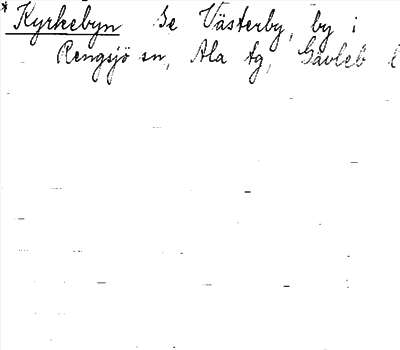 * Kyrkebyn Se Västerby, by i
Rengsjö sn, Ala tg, Gävleb l